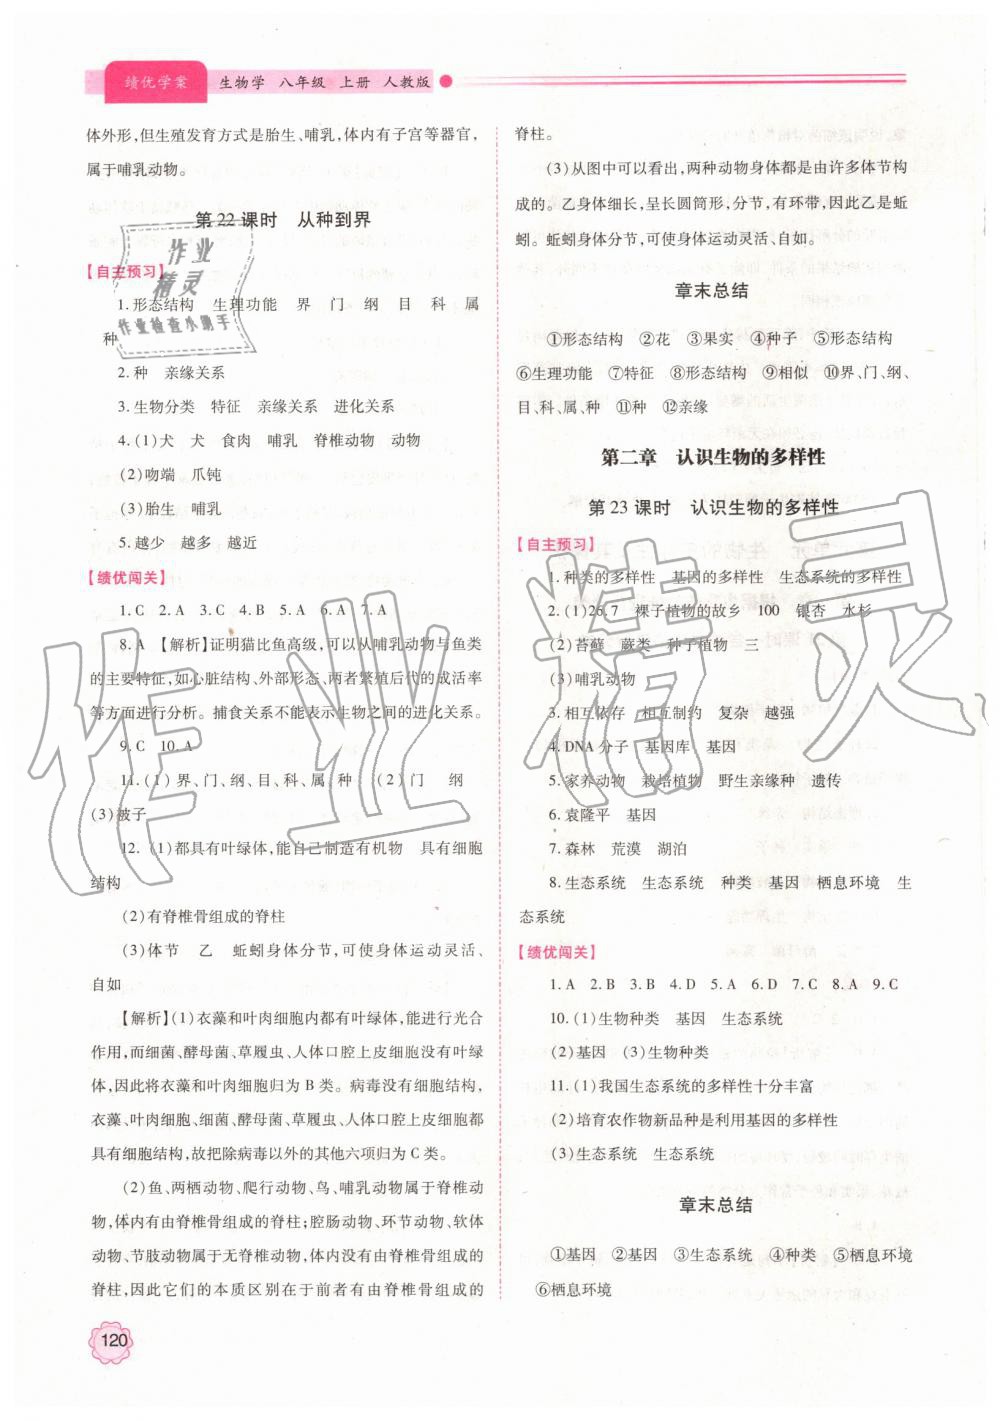 绩优学案 生物学 八年级 上册 人教版
体外形,但生殖发育方式是胎生、哺乳,体内有子宫等器官,
属于哺乳动物。
第 22 课时 从种到界
【自主预习】
1.形态结构 生理功能 界 门 纲 目 科 属
种
2.种 亲缘关系
3.生物分类 特征 亲缘关系 进化关系
4.(1)犬 犬 食肉 哺乳 脊椎动物 动物
(2)吻端 爪钝
(3)胎生 哺乳
5.越少 越多 越近
【绩优闯关】
1.C 2.A 3.C 4.B 5.A 6.A 7.A
8.A 【解析】证明猫比鱼高级,可以从哺乳动物与鱼类
的主要特征,如心脏结构、外部形态、两者繁殖后代的成活率
等方面进行分析。捕食关系不能表示生物之间的进化关系。
9.C 10.A
11.(1)界、门、纲、目、科、属、种 (2)门 纲
(3)被子
12.(1)都具有叶绿体,能自己制造有机物 具有细胞
结构
(2)有脊椎骨组成的脊柱
(3)体节 乙 蚯蚓身体分节,可使身体运动灵活、
自如
【解析】(1)衣藻和叶肉细胞内都有叶绿体,能进行光合
作用,而细菌、酵母菌、草履虫、人体口腔上皮细胞没有叶绿
体,因此将衣藻和叶肉细胞归为 B 类。病毒没有细胞结构,
衣藻、叶肉细胞、细菌、酵母菌、草履虫、人体口腔上皮细胞都
具有细胞结构,故把除病毒以外的其他六项归为 C 类。
(2)鱼、两栖动物、爬行动物、鸟、哺乳动物属于脊椎动
物,体内有由脊椎骨组成的脊柱;腔肠动物、环节动物、软体
动物、节肢动物属于无脊椎动物,体内没有由脊椎骨组成的
脊柱,因此它们的本质区别在于前者有由脊椎骨组成的
脊柱。
(3)从图中可以看出,两种动物身体都是由许多体节构
成的。乙身体细长,呈长圆筒形,分节,有环带,因此乙是蚯
蚓。蚯蚓身体分节,可使身体运动灵活、自如。
章末总结
①形态结构 ②花 ③果实 ④种子 ⑤形态结构
⑥生理功能 ⑦特征 ⑧形态结构 ⑨相似 ⑩界、门、纲、
目、科、属、种 ⑪种 ⑫亲缘
第二章 认识生物的多样性
第 23 课时 认识生物的多样性
【自主预习】
1.种类的多样性 基因的多样性 生态系统的多样性
2.(1)26.7 裸子植物的故乡 100 银杏 水杉
(2)苔藓 蕨类 种子植物 三
(3)哺乳动物
3.相互依存 相互制约 复杂 越强
4.DNA 分子 基因库 基因
5.家养动物 栽培植物 野生亲缘种 遗传
6.袁隆平 基因
7.森林 荒漠 湖泊
8.生态系统 生态系统 种类 基因 栖息环境 生
态系统
【绩优闯关】
1.A 2.B 3.B 4.D 5.A 6.D 7.C 8.A 9.C
10.(1)生物种类 基因 生态系统
(2)基因 (3)生物种类
11.(1)我国生态系统的多样性十分丰富
(2)培育农作物新品种是利用基因的多样性
(3)生态系统 生态系统
章末总结
①基因 ②基因 ③生态系统 ④种类 ⑤栖息环境
⑥栖息环境
120
作业
精灵
作业检查小助手
作业精灵